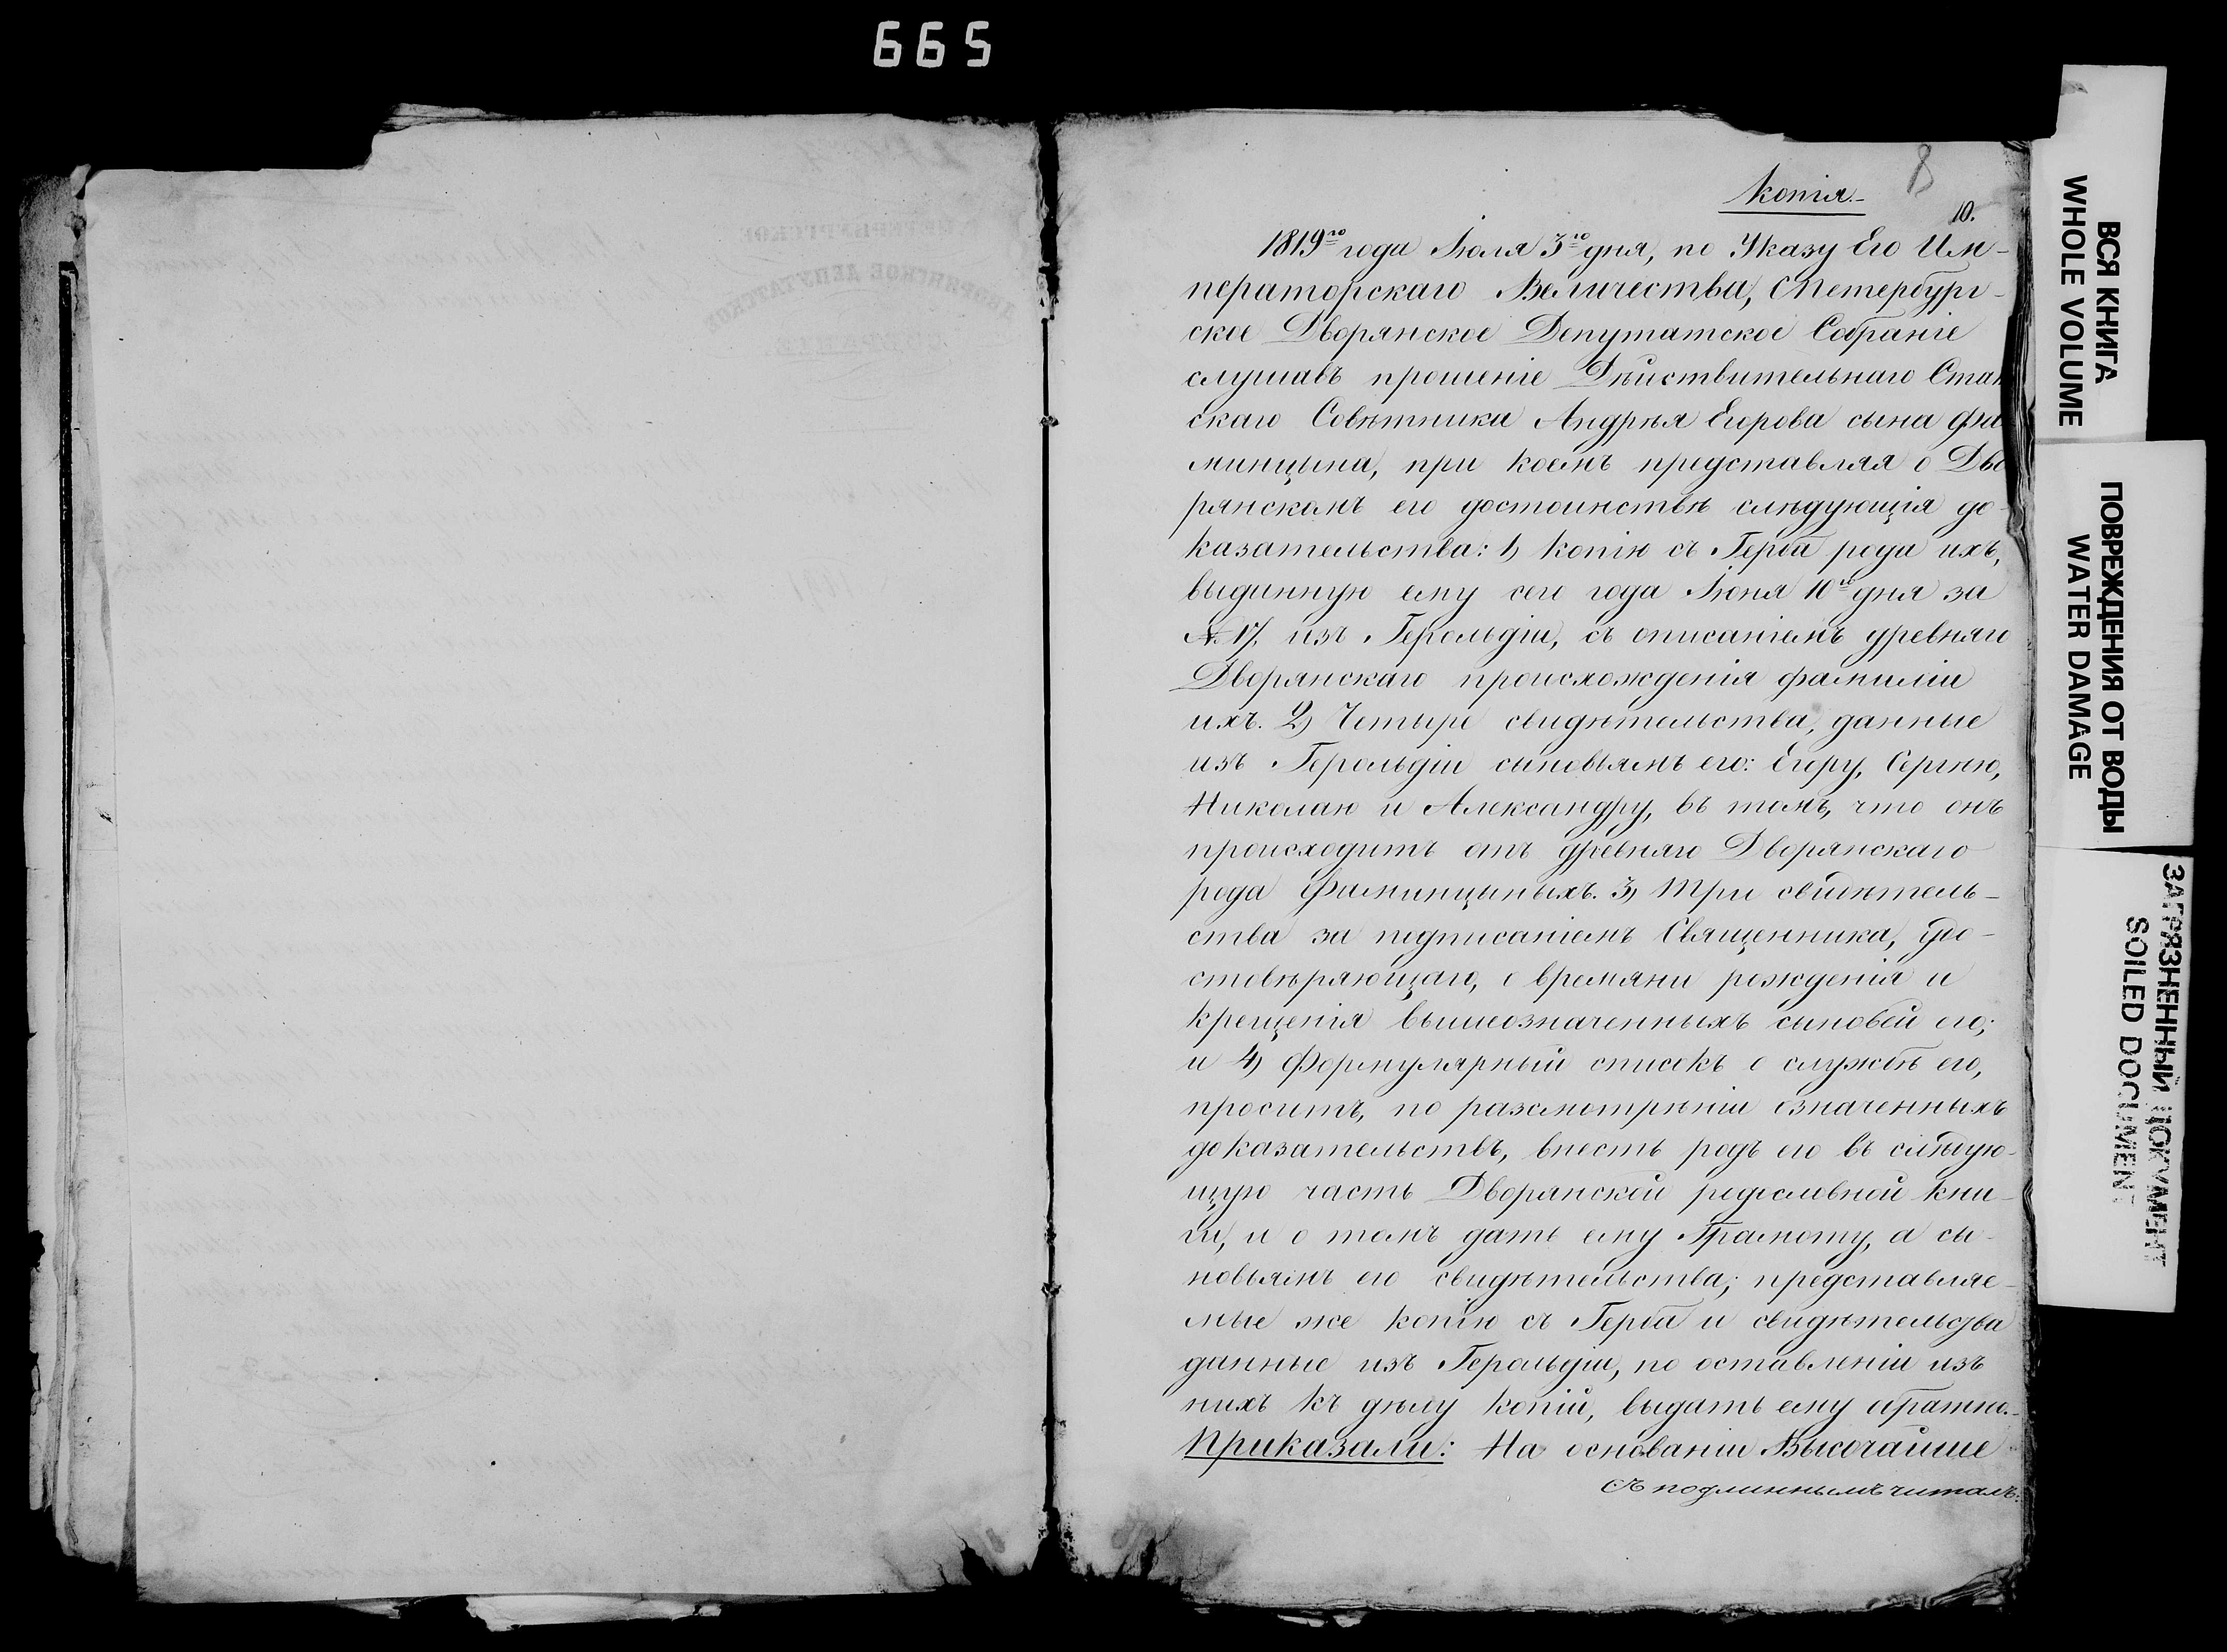 665
8
Копія.-
10.
1819го года Іюля 3го дня, по Указу Его Им-
ператорскаго Величества, СПетербург-
ское Дворянское Депутатское Собраніе
слушавъ прошеніе Дѣйствительнаго Стат
скаго Совѣтника Андрѣя Егорова сына Фа
минцына, при коемъ представляя о Дво
рянскомъ его достоинствѣ слѣдующія до-
казательства: 1) копію съ Герба рода ихъ,
выданную ему сего года Іюня 10го дня за
№ 17. изъ Герольдіи, съ описаніемъ древняго
Дворянскаго происхожденія фамиліи
ихъ. 2) Четыре свидѣтельства, данные
изъ Герольдіи сыновьямъ его: Егору, Сергѣю,
Николаю и Александру, въ томъ, что онъ
происходитъ отъ древняго Дворянскаго
рода Фаминцыныхъ. 3) Три свидѣтель-
ства за подписаніемъ Священника, удо-
стовѣряющаго, о времяни рожденія и
крещенія вышеозначенныхъ сыновей его;
и 4) Формулярный списокъ о службѣ его,
проситъ, по разсмотрѣніи означенныхъ
доказательствъ, внесть родъ его въ слѣдую-
щую часть Дворянской родословной кни-
ги, и о томъ дать ему Грамоту, а сы-
новьямъ его свидѣтельства; представляе-
мые же копію съ Герба и свидѣтельства
данные изъ Герольдіи, по оставленіи изъ
нихъ къ дѣлу копій, выдать ему обратно.-
Приказали: На основаніи Высочайше
Съ подлиннымъ читалъ:
ВСЯ КНИГА
WHOLE VOLUME
ПОВРЕЖДЕНИЯ ОТ ВОДЫ
WATER DAMAGE
ЗАГРЯЗНЕННЫЙ ДОКУМЕНТ
SOILED DOCUMENT